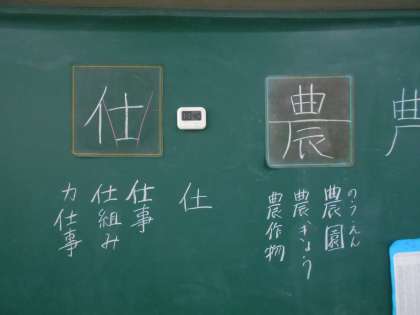 農
のうえん
農園
農ぎょう
農作物
仕
仕
仕事
仕組み
力仕事